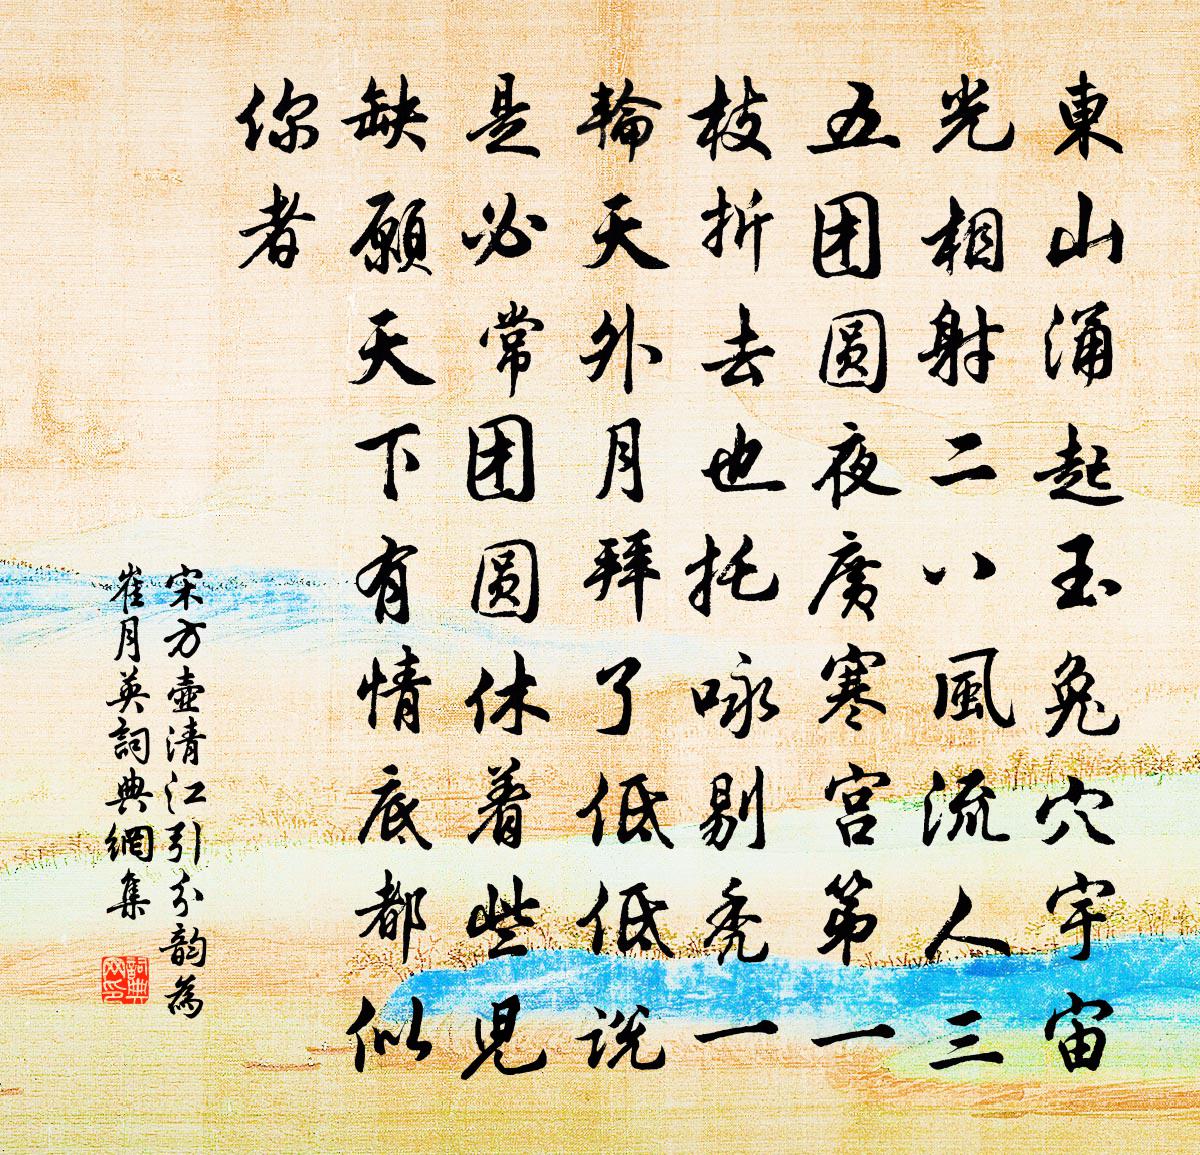 東山涌起玉兔穴宇宙
光相射二八風流人三
五团圆夜廣寒宫第一
枝折去也托咏剔秃一
輪天外月拜了低低説
是必常团圆休着些兒
缺願天下有情底都似
你者
宋方壺清江引分韵為
崔月英詞典網集
詞典网印